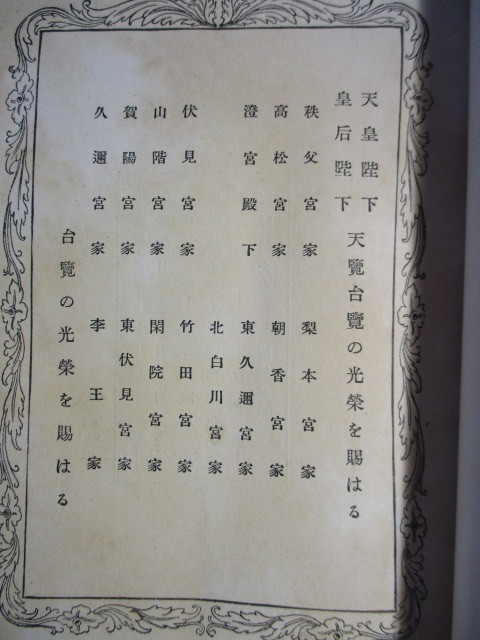 天皇陛下
皇后陛下
天覽台覽の光榮を賜はる
秩父宮家
高松宮家
澄宮殿下
伏見宮家
山階宮家
賀陽宮家
久邇宮家
梨本宮家
朝香宮家
東久邇宮家
北白川宮家
竹田宮家
閑院宮家
東伏見宮家
李王家
台覽の光榮を賜はる